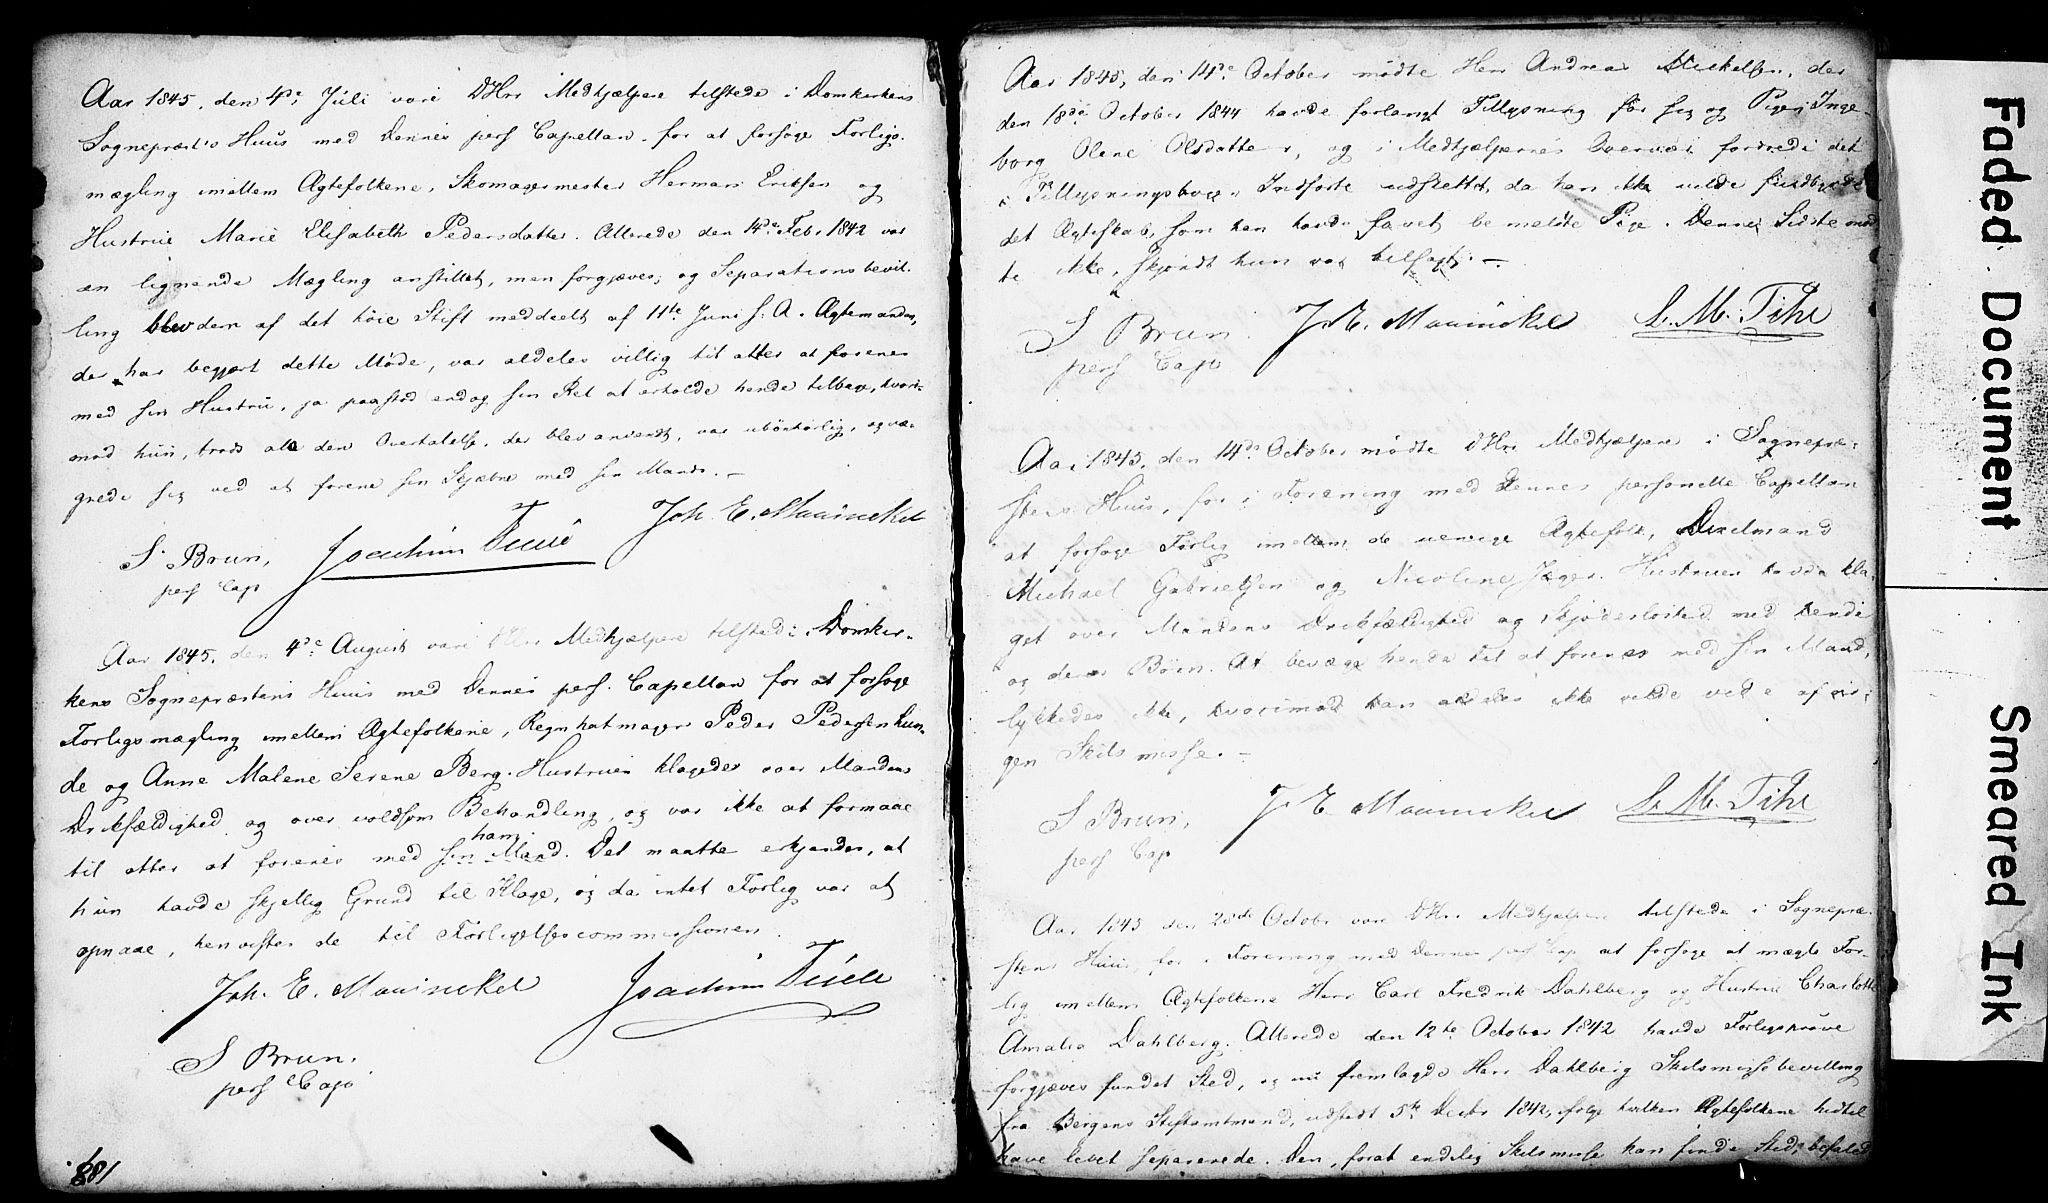 Aar 1845, den 4de Juli vare DHrr Medhjælpere tilstede i Domkirkens
Sognepræst's Huus med Dennes pers Capellan, for at forsøge Forligs-
mægling imellem Ægtefolkene, Skomagermester Herman Eriksen og
Hustrue Marie Elisabeth Pedersdatter. Allerede den 14de Febr 1842 var
en lignende Mægling anstillet, men forgjæves, og Separationsbevil-
ling blev dem af det høie Stift meddeelt af 11te Juni s. A. Ægtemanden,
der har begjært dette Møde, var aldeles villig til atter at forenes
med sin Hustru, ja paastod endog sin Ret at erholde hende tilbage, hvori-
mod hun, trods al den Overtalelse, der blev anvendt, var ubønhørlig, og væ-
grede sig ved at forene sin Skjæbne med sin Mands. —
S. Brun,
pers Cap
Joachim
Joh. E. Mowinckel
Aar 1845, den 4de August vare DHrr Medhjælpere tilstede i Domkir-
kens Sognepræstens Huus med Dennes pers. Capellan for at forsøge
Forligsmægling imellem Ægtefolkene, Regnhatmager Peder Pedersen Lun-
de og Anne Malene Serene Berg. Hustruen klagede over Mandens
Drikfældighed og over voldsom Behandling, og var ikke at formaae
til atter at forenes med sin Mand. Det maatte erkjendes, at
ham
hun havde skjellig Grund til Klage, og da intet Forlig var at
opnaae, henvistes de til Forligelsescommissionen.
Joh. E. Mowinckel
Joachim
S Brun,
pers Cap
188
Aar 1845, den 14de October mødte Herr Andreas Mickelsen, der
den 18de October 1844 havde forlangt Tillysning for sig og Pigen Inge-
borg Olene Olsdatter, og i Medhjælpernes Overvær fordrede det
i Tillysningsbogen Indførte udslettet, da han ikke vilde fuldbyrde
det Ægteskab, som han havde lovet bemeldte Pige. Denne Sidste mød-
te ikke, skjøndt hun var tilsagt. —
S Brun
pers Cap
J. E. Mowinckel
L. M. Tihe
Aar 1845, den 14de October mødte DHrr Medhjælpere i Sognepræ-
stens Huus, for i Forening med Dennes personelle Capellan
at forsøge Forlig imellem de uenige Ægtefolk, Dixelmand
Michael Gabrielsen og Nicoline Jæger. Hustruen havde kla-
get over Mandens Drikfældighed og Skjødesløshed med hende
og deres Børn. At bevæge hende til at forenes med sin Mand,
lykkedes ikke, hvorimod han aldeles ikke vilde vide af no-
gen Skilsmisse. —
S Brun,
pers Cap
J. E. Mowinckel
L. M. Tihe
Aar 1845 den 28de Octobr vare DHrr Medhjælpere tilstede i Sognepræ-
stens Huus, for i Forening med Dennes pers Cap at forsøge at mægle For-
lig imellem Ægtefolkene Herr Carl Fredrik Dahlberg og Hustru Charlotte
Amalia Dahlberg. Allerede den 12te October 1842 havde Forligsprøve
forgjæves fundet Sted, og nu fremlagde Herr Dahlberg Skilsmissebevilling
fra Bergens Stiftamtmand, udstedt 5te Decbr 1842, ifølge hvilken Ægtefolkene hidtil
have levet separerede. Den, forat endelig Skilsmisse kan finde Sted, befalede
Faded Document
Smeared Ink